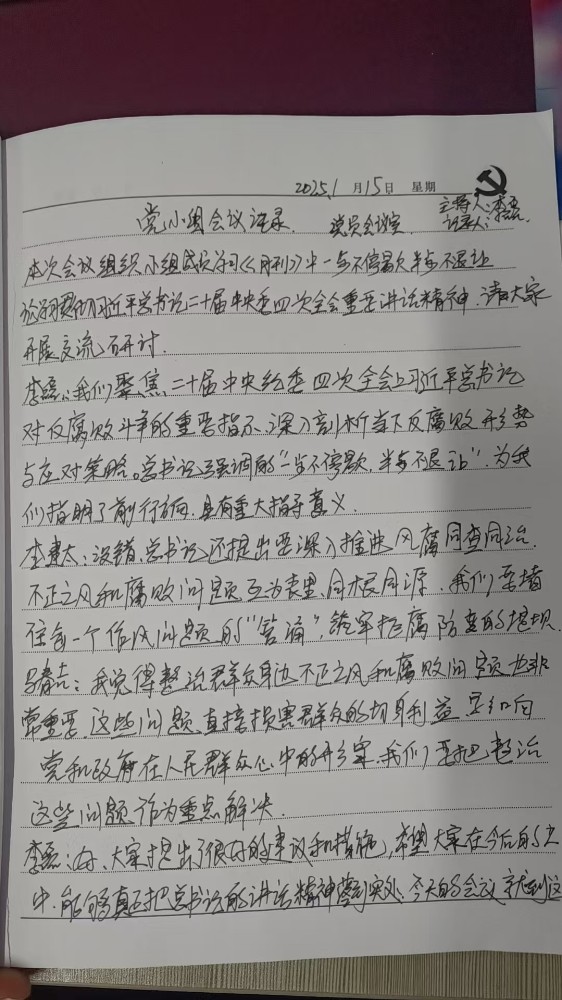 2025.1月15日 星期
党小组会议记录. 党员会议室 主持人:李磊
记录人:
本次会议组织小组成员学习《月刊》中一步不停歇 半步不退让
论学习贯彻习近平总书记二十届中央委四次全会重要讲话精神. 请大家
开展交流研讨.
李磊:我们聚焦二十届中央纪委四次全会上习近平总书记
对反腐败斗争的重要指示、深入剖析当下反腐败形势
与应对策略。总书记强调的"一步不停歇,半步不退让",为我
们指明了前行方向.具有重大指导意义.
李 大:没错,总书记还提出要深入推进风腐同查同治.
不正之风和腐败问题互为表里、同根同源.我们要堵
住每一个作风问题的"管涌",筑牢拒腐防变的堤坝.
马春吉:我觉得整治群众身边不正之风和腐败问题也非
常重要.这些问题直接损害群众的切身利益 影响
党和政府在人民群众心中的形象.我们要把整治
这些问题作为重点解决.
李磊:好、大家提出了很好的建议和措施,希望大家在今后的工
中.能够真正把总书记的讲话精神落到实处.今天的会议就到这